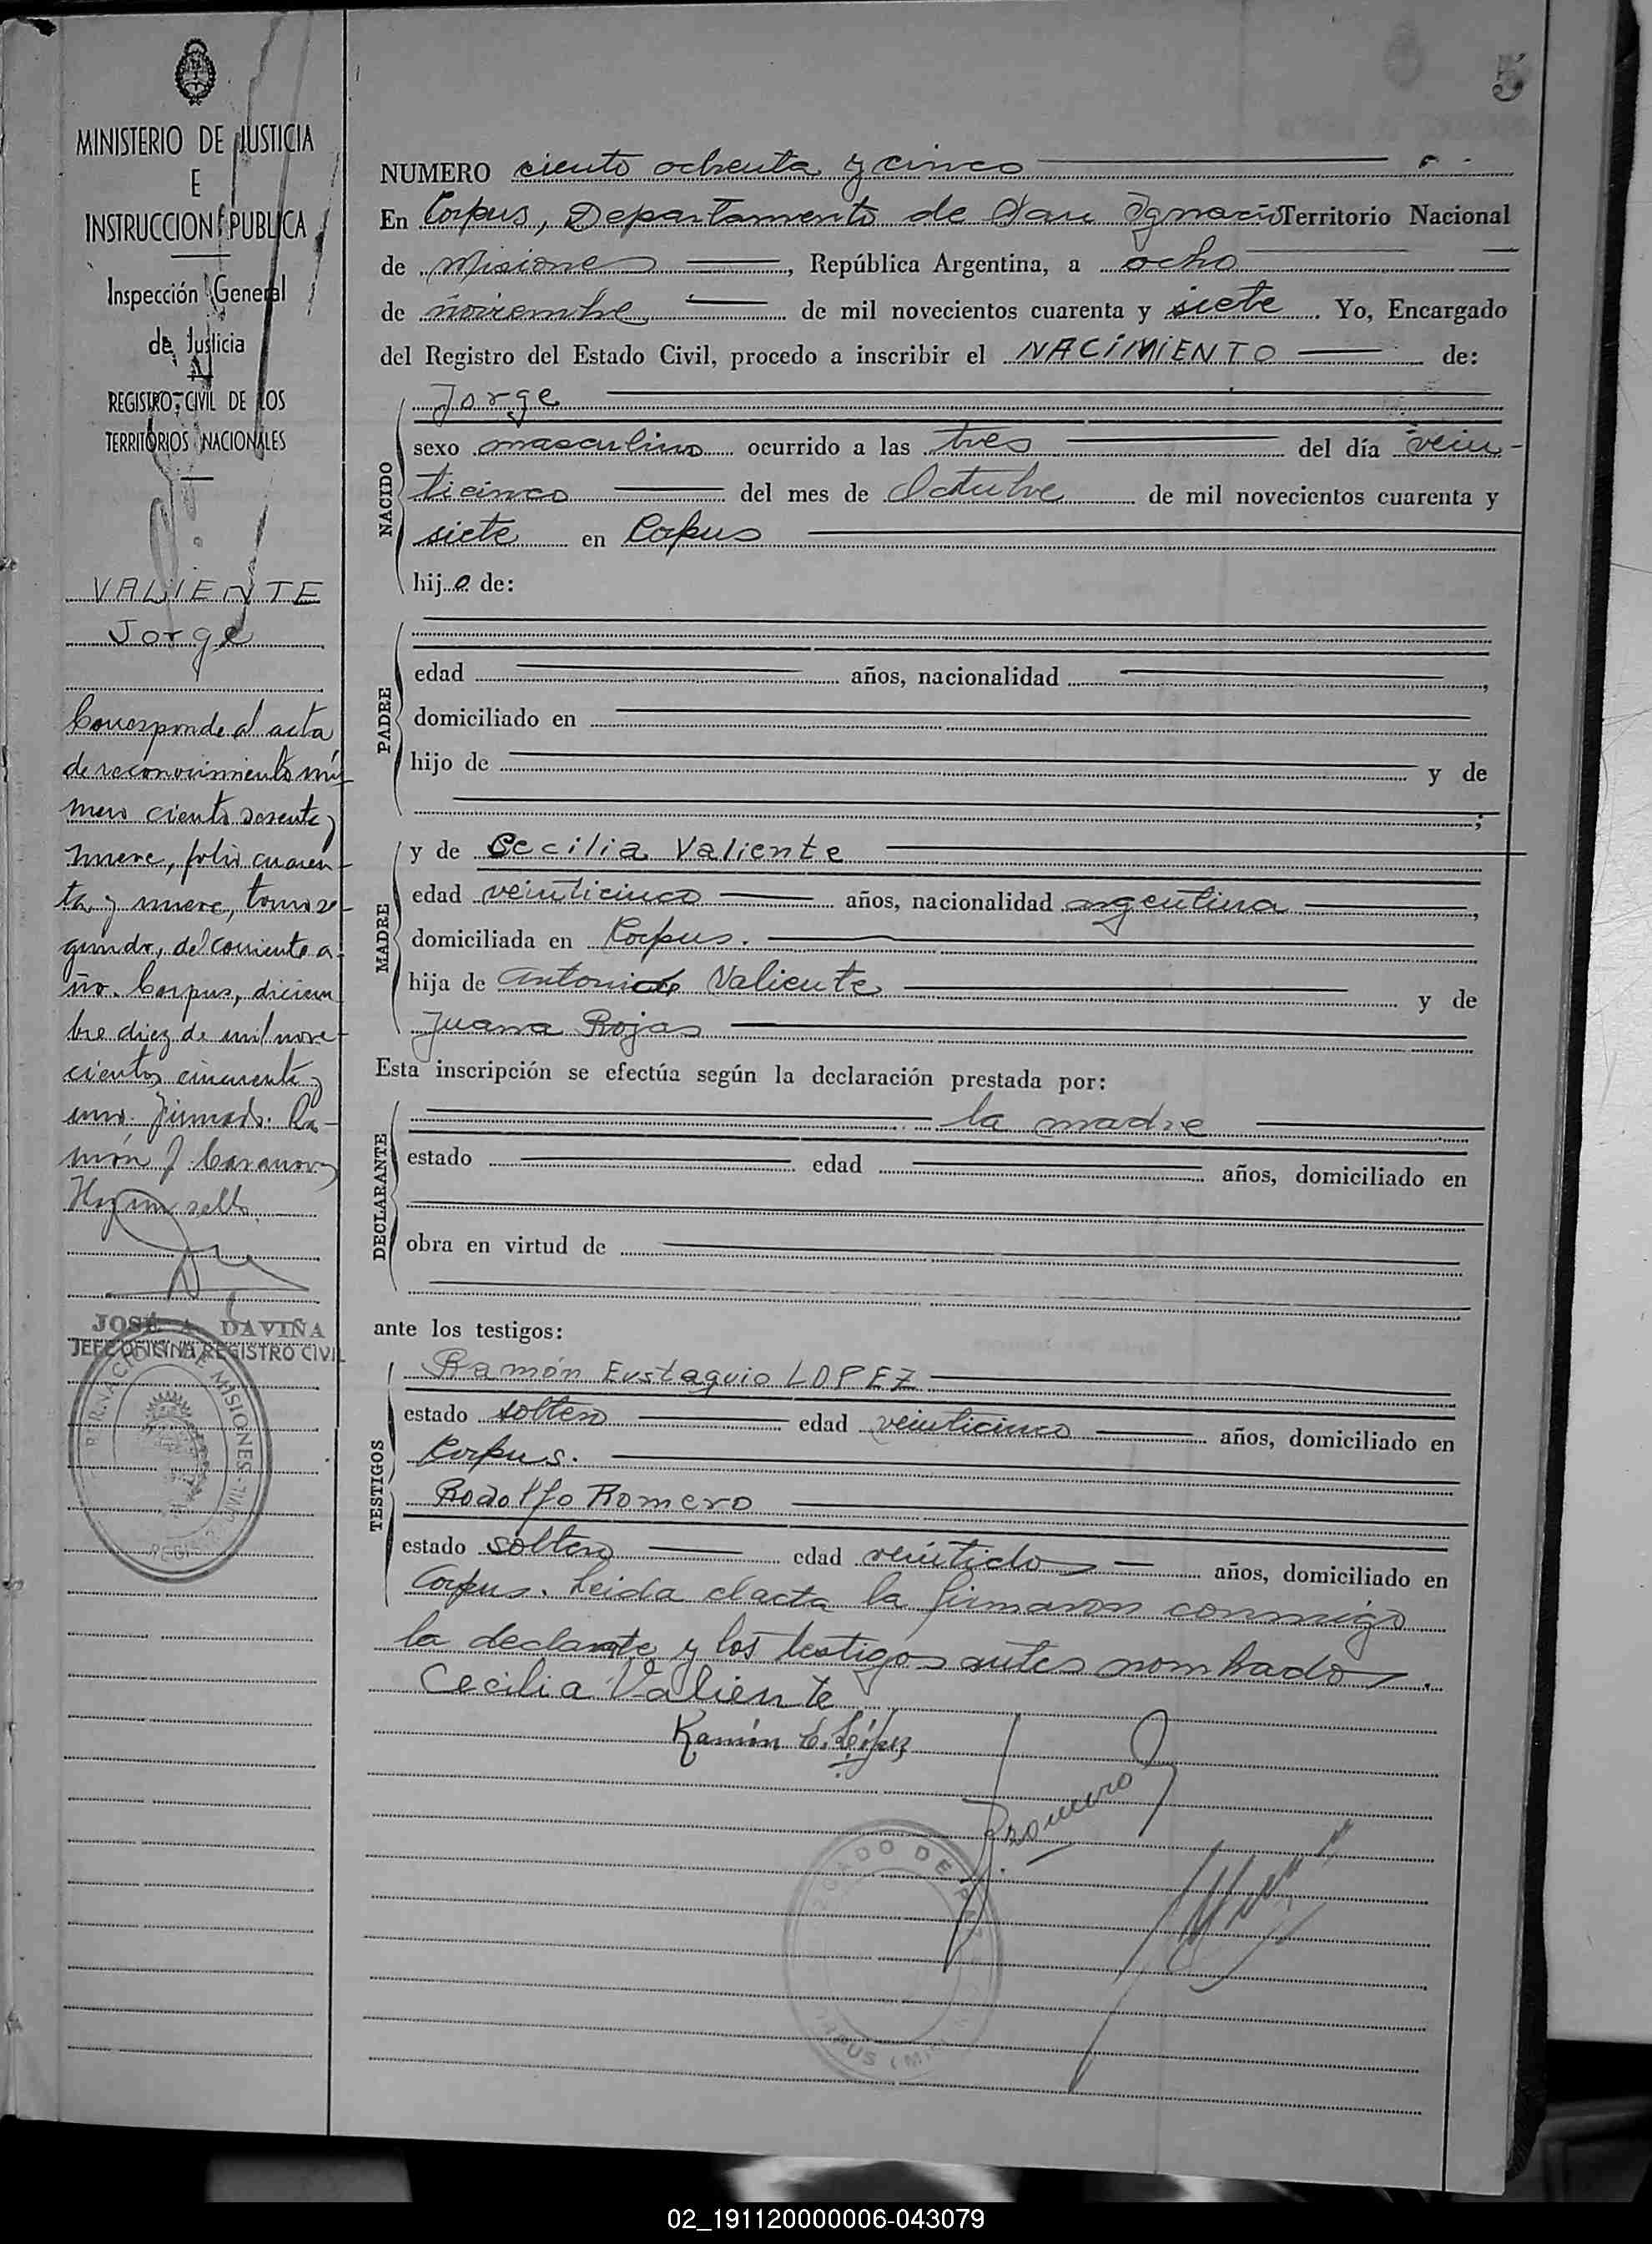 MINISTERIO DE JUSTICIA
E
INSTRUCCION PUBLICA
Inspección General
de Justicia
REGISTRO CIVIL DE LOS
TERRITORIOS NACIONALES
VALIENTE
Jorge
Corresponde al acta
de reconocimiento nú-
mero ciento sesenta y
nueve, folio cuaren-
ta y nueve, tomo se-
gundo, del corriente a-
ño. Corpus, diciem
bre diez de mil nove-
cientos cincuenta y
uno. Firmado. Ra-
món J Casanova
Hay un sello.
JOSÉ A. DAVIÑA
JEFE OFICINA REGISTRO CIVIL
MISIONES
5
NUMERO ciento ochenta y cinco
En Corpus, Departamento de San Ignacio Territorio Nacional
de Misiones, República Argentina, a ocho
de noviembre de mil novecientos cuarenta y siete. Yo, Encargado
del Registro del Estado Civil, procedo a inscribir el NACIMIENTO de:
NACIDO
Jorge
sexo masculino ocurrido a las tres del día vein-
ticinco del mes de Octubre de mil novecientos cuarenta y
siete en Corpus
hijo de:
PADRE
edad años, nacionalidad ,
domiciliado en
hijo de y de
;
MADRE
y de Cecilia Valiente
edad veinticinco años, nacionalidad argentina ,
domiciliada en Corpus.
hija de Antonio Valiente y de
Juana Rojas
Esta inscripción se efectúa según la declaración prestada por:
DECLARANTE
la madre
estado edad años, domiciliado en
obra en virtud de
ante los testigos:
TESTIGOS
Ramón Eustaquio LOPEZ
estado soltero edad veinticinco años, domiciliado en
Corpus.
Rodolfo Romero
estado soltero edad veintidos años, domiciliado en
Corpus. Leida el acta la firmaron conmigo
la declarante y los testigos antes nombrados.
Cecilia Valiente
Ramón E. López
Romero
02_191120000006-043079